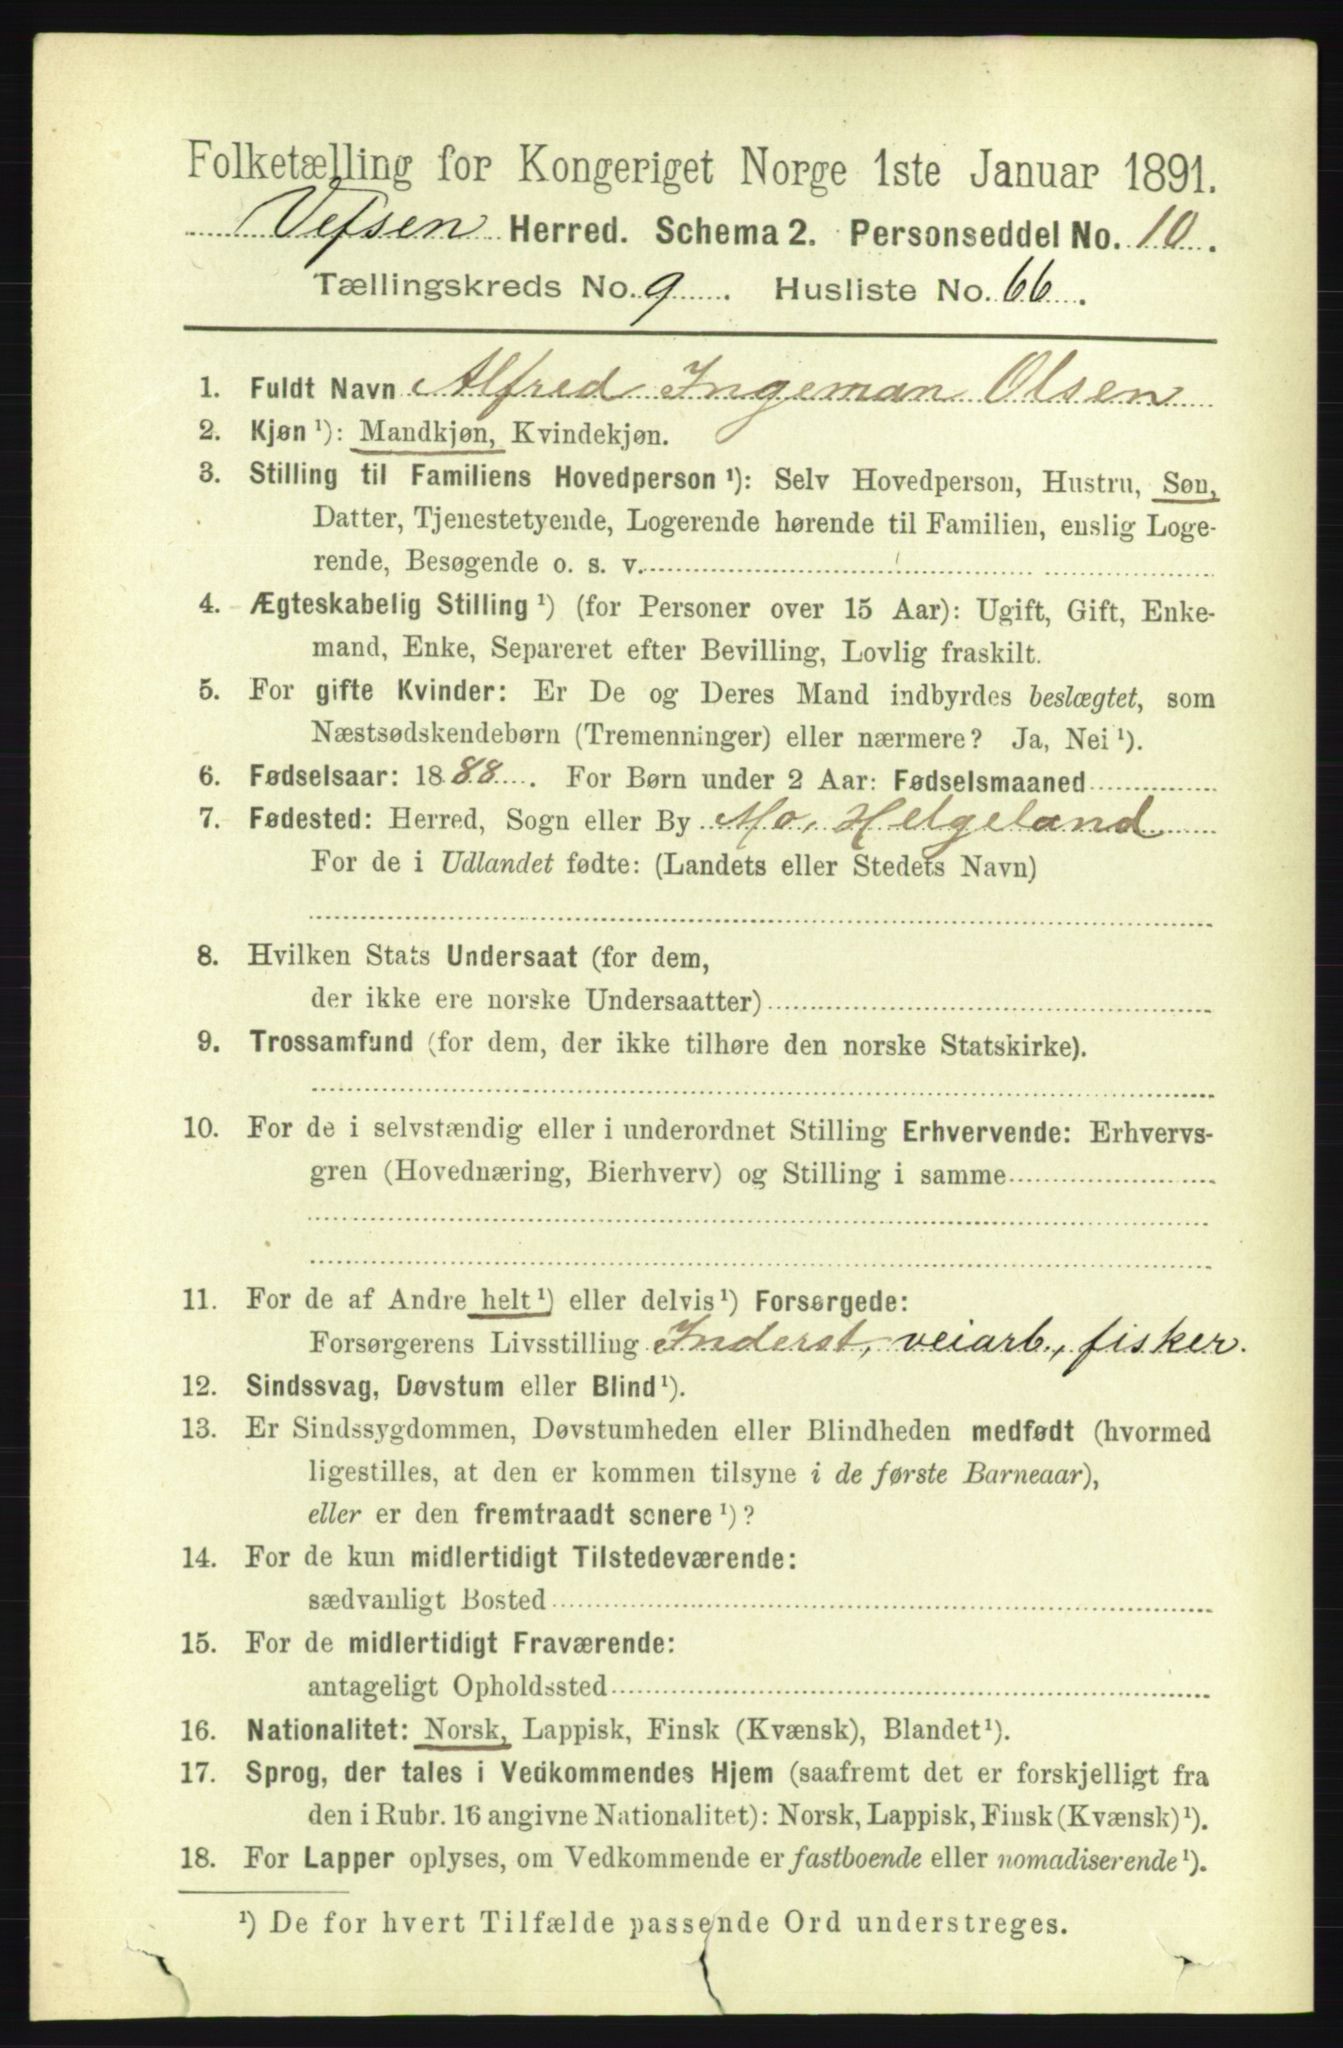 Folketælling for Kongeriget Norge 1ste Januar 1891.
Vefsen Herred. Schema 2. Personseddel No. 10.
Tællingskreds No. 9. Husliste No. 66.
1. Fuldt Navn Alfred Ingeman Olsen
2. Kjøn ¹): Mandkjøn, Kvindekjøn.
3. Stilling til Familiens Hovedperson ¹): Selv Hovedperson, Hustru, Søn,
Datter, Tjenestetyende, Logerende hørende til Familien, enslig Loge-
rende, Besøgende o. s. v.
4. Ægteskabelig Stilling ¹) (for Personer over 15 Aar): Ugift, Gift, Enke-
mand, Enke, Separeret efter Bevilling, Lovlig fraskilt.
5. For gifte Kvinder: Er De og Deres Mand indbyrdes beslægtet, som
Næstsødskendebørn (Tremenninger) eller nærmere? Ja, Nei ¹).
6. Fødselsaar: 1888. For Børn under 2 Aar: Fødselsmaaned
7. Fødested: Herred, Sogn eller By Mo, Helgeland
For de i Udlandet fødte: (Landets eller Stedets Navn)
8. Hvilken Stats Undersaat (for dem,
der ikke ere norske Undersaatter)
9. Trossamfund (for dem, der ikke tilhøre den norske Statskirke).
10. For de i selvstændig eller i underordnet Stilling Erhvervende: Erhvervs-
gren (Hovednæring, Bierhverv) og Stilling i samme
11. For de af Andre helt ¹) eller delvis ¹) Forsørgede:
Forsørgerens Livsstilling Inderst, veiarb., fisker.
12. Sindssvag, Døvstum eller Blind ¹).
13. Er Sindssygdommen, Døvstumheden eller Blindheden medfødt (hvormed
ligestilles, at den er kommen tilsyne i de første Barneaar),
eller er den fremtraadt senere ¹)?
14. For de kun midlertidigt Tilstedeværende:
sædvanligt Bosted
15. For de midlertidigt Fraværende:
antageligt Opholdssted
16. Nationalitet: Norsk, Lappisk, Finsk (Kvænsk), Blandet ¹).
17. Sprog, der tales i Vedkommendes Hjem (saafremt det er forskjelligt fra
den i Rubr. 16 angivne Nationalitet): Norsk, Lappisk, Finsk (Kvænsk) ¹).
18. For Lapper oplyses, om Vedkommende er fastboende eller nomadiserende ¹).
¹) De for hvert Tilfælde passende Ord understreges.